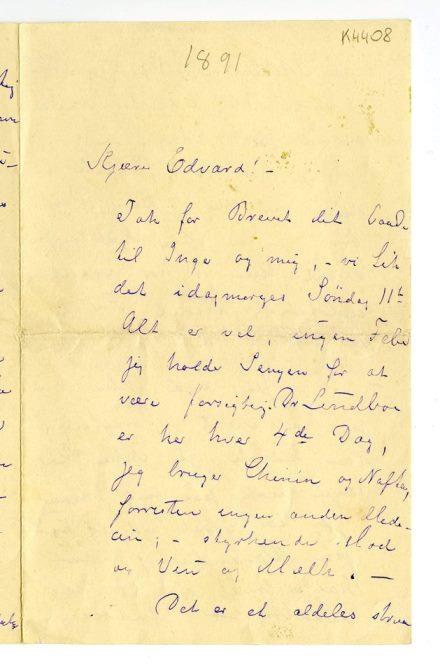 K4408
1891
Kjære Edvard! –
Tak for Brevet dit baade
til Inger og mig, – vi fik
det idagmorges Søndag 11te
Alt er vel, ingen Feber
jeg holder Sengen for at
være forsigtig. Dr
er her hver 4de Dag,
jeg bruger Chinin og Nafta,
forresten ingen anden Mede-
cin; – styrkende Mad
og Vin og Melk. –
Det er et aldeles